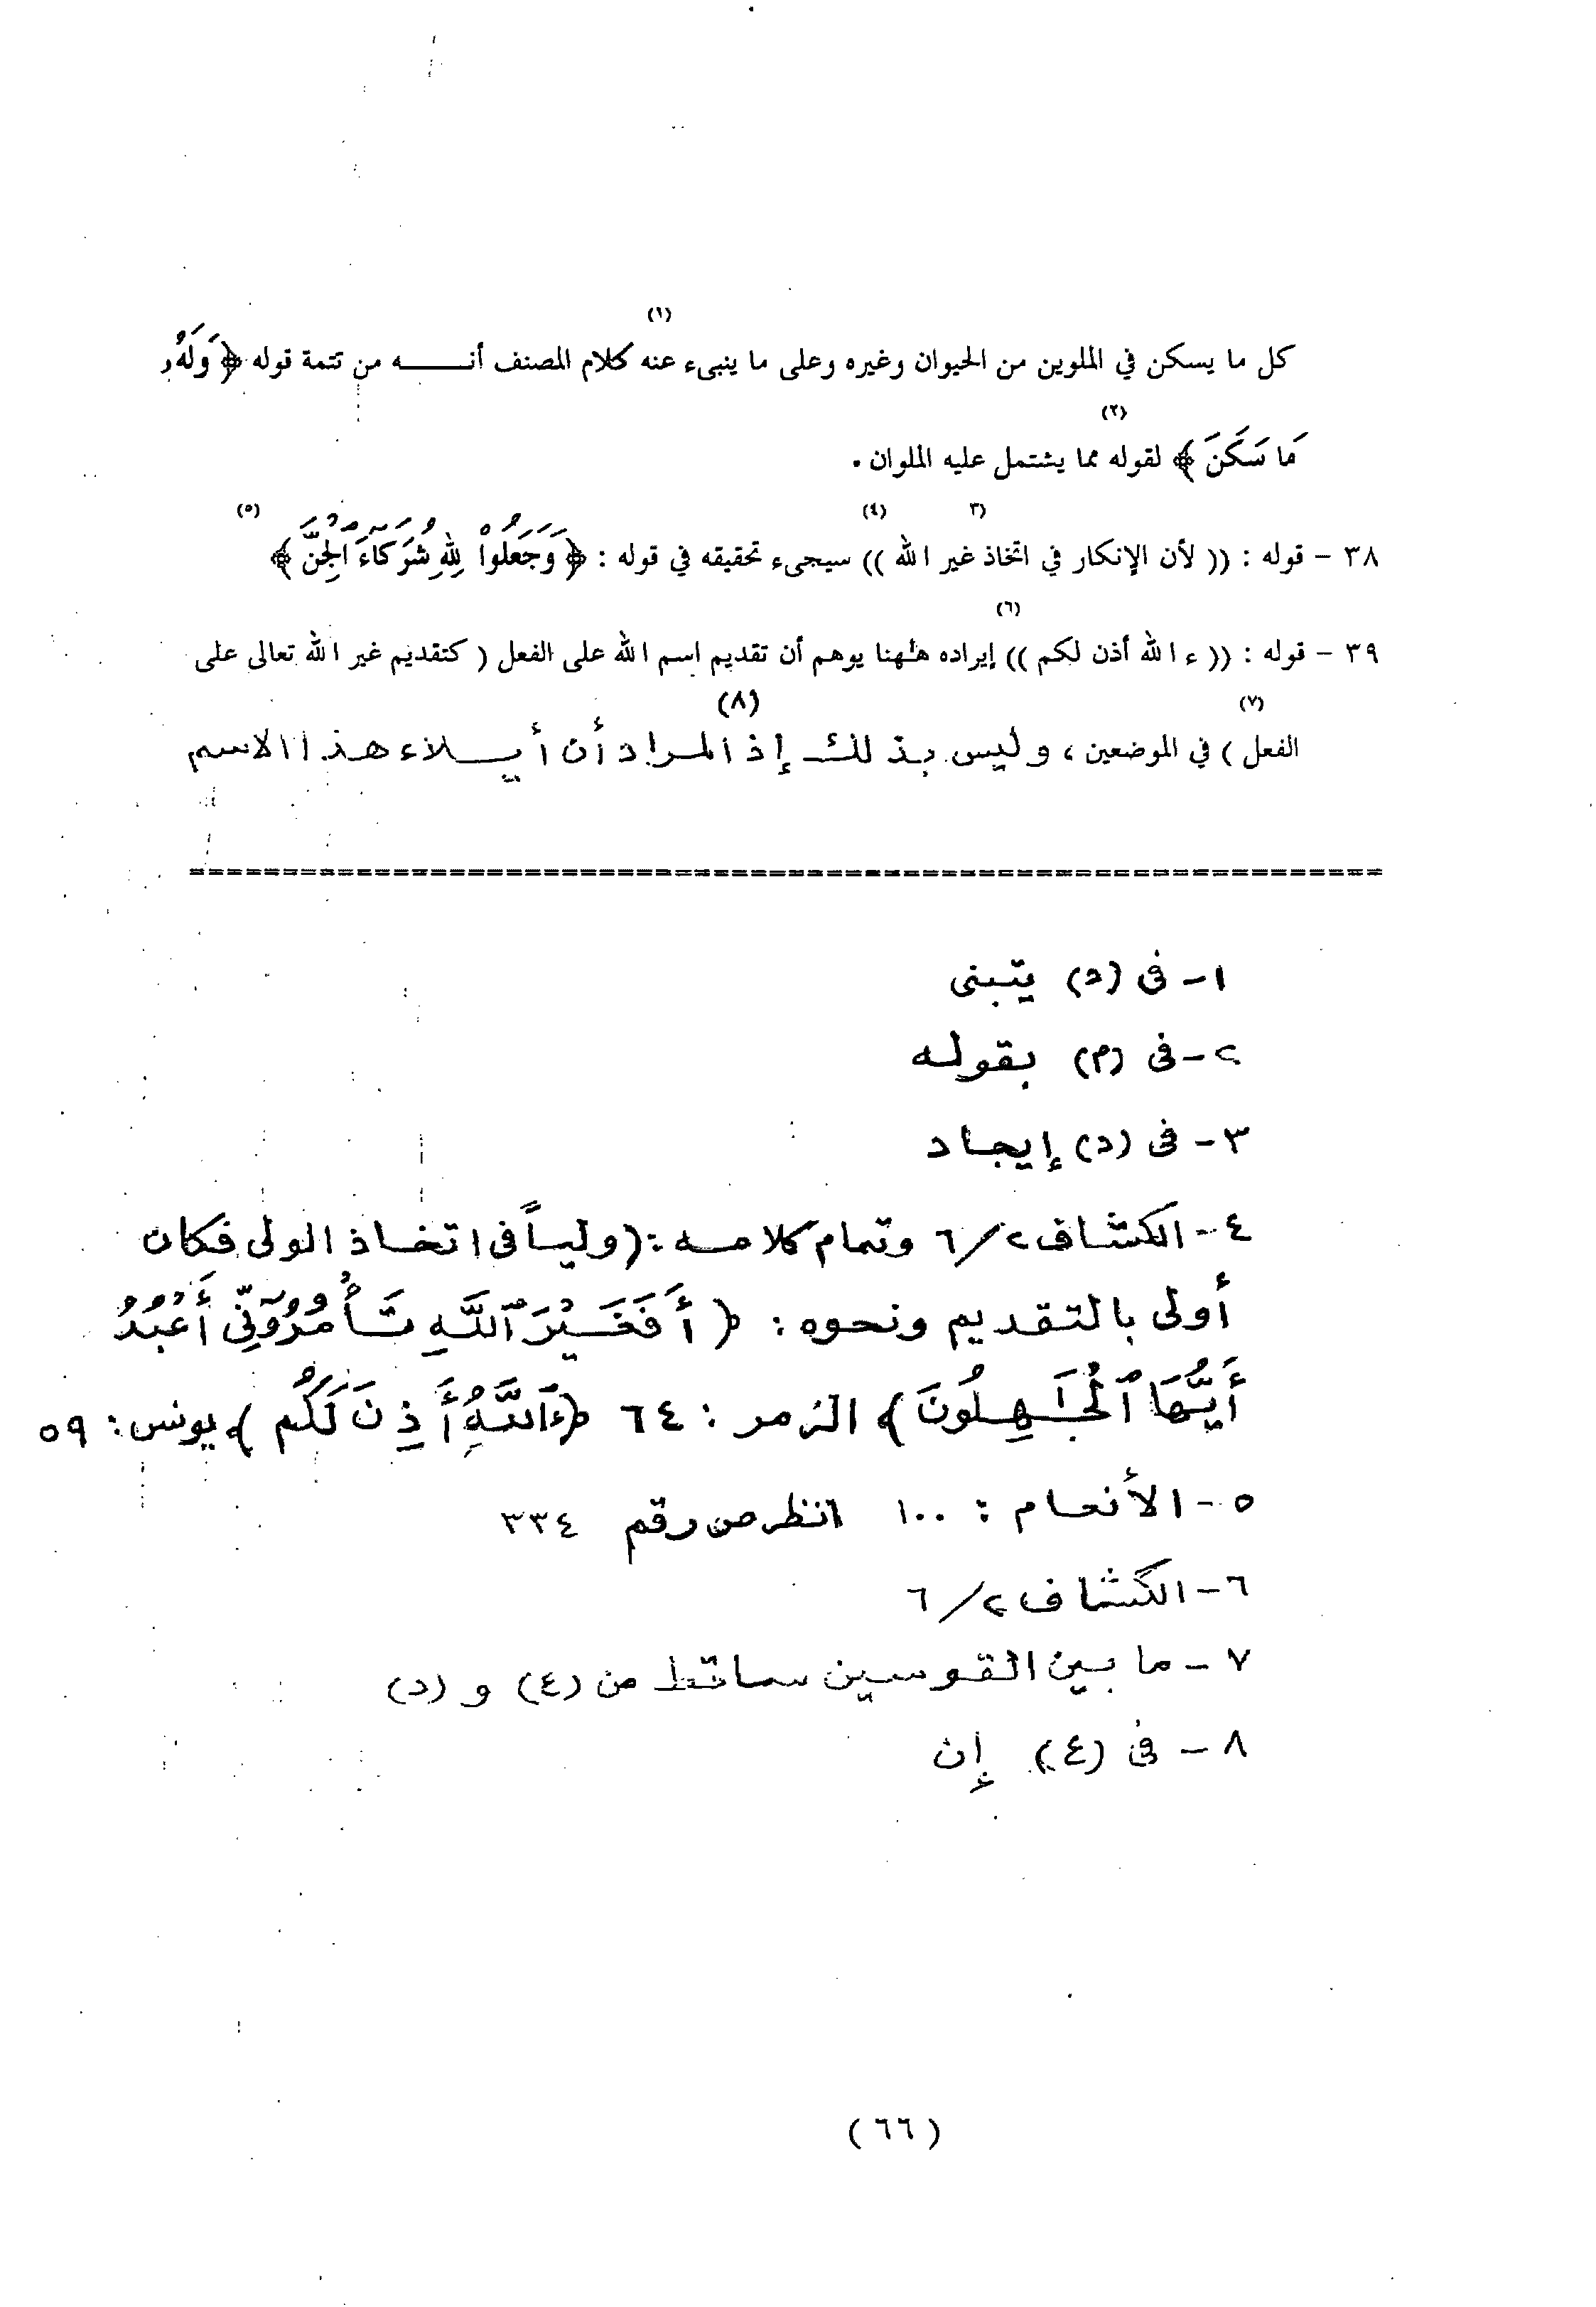 (١)
كل ما يسكن في الملوين من الحيوان وغيره وعلى ما ينبىء عنه كلام المصنف أنـــــه من تتمة قوله ﴿ وَلَهُۥ
(٢)
مَا سَكَنَ ﴾ لقوله مما يشتمل عليه الملوان .
(٣ (٤) (٥)
٣٨ - قوله : (( لأن الإنكار في اتخاذ غير الله )) سيجىء تحقيقه في قوله : ﴿ وَجَعَلُواْ لِلَّهِ شُرَكَآءَ الْجِنَّ ﴾
(٦)
٣٩ - قوله : (( ء الله أذن لكم )) إيراده هٰهنا يوهم أن تقديم اسم الله على الفعل ( كتقديم غير الله تعالى على
(٧) (٨)
الفعل ) في الموضعين ، وليس بذلك إذ المراد أن أيـلاء هذا الاسم
١- فى (د) يتبنى
٢- فى (م) بقوله
٣- فى (د) إيجاد
٤- الكشاف ٢/٦ وتمام كلامه : (ولياً فى اتخاذ الولى فكان
أولى بالتقديم ونحوه : ﴿ أَفَغَيْرَ ٱللَّهِ تَأْمُرُوٓنِّى أَعْبُدُ
أَيُّهَا ٱلْجَٰهِلُونَ ﴾ الزمر : ٦٤ ﴿ ءَآللَّهُ أَذِنَ لَكُمْ ﴾ يونس : ٥٩
٥- الأنعام : ١٠٠ انظر من رقم ٣٣٤
٦- الكشاف ٢/٦
٧- ما بين القوسين ساقط من (ع) و (د)
٨- فى (ع) إن
(٦٦)